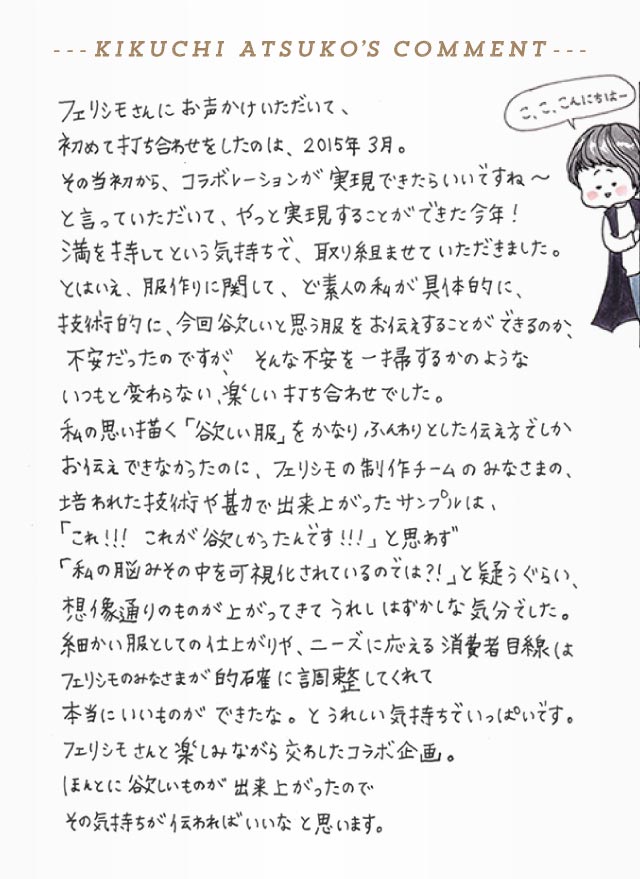 ---KIKUCHI ATSUKO'S COMMENT---
こ、こ、こんにちはー
フェリシモさんに お声かけいただいて、
初めて打ち合わせをしたのは、2015年 3月。
その当初から、コラボレーションが 実現できたらいいですね〜
と言っていただいて、やっと実現することができた今年!
満を持してという気持ちで、取り組ませていただきました。
とはいえ、服作りに関して、ど素人の私が具体的に、
技術的に、今回欲しいと思う服をお伝えすることができるのか、
不安だったのですが、そんな不安を一掃するかのような
いつもと変わらない、楽しい打ち合わせでした。
私の思い描く「欲しい服」をかなりふんわりとした伝え方でしか
お伝えできなかったのに、フェリシモの制作チームのみなさまの、
培われた技術や甚力で出来上がったサンプルは、
「これ!!! これが欲しかったんです!!!」と思わず
「私の脳みその中を可視化されているのでは?!」と疑うぐらい、
想像通りのものが上がってきてうれしはずかしな気分でした。
細かい服としての仕上がりや、ニーズに応える消費者目線は
フェリシモのみなさまが的確に調整してくれて
本当にいいものができたな。とうれしい気持ちでいっぱいです。
フェリシモさんと楽しみながら交わしたコラボ企画。
ほんとに欲しいものが出来上がったので
その気持ちが伝わればいいなと思います。